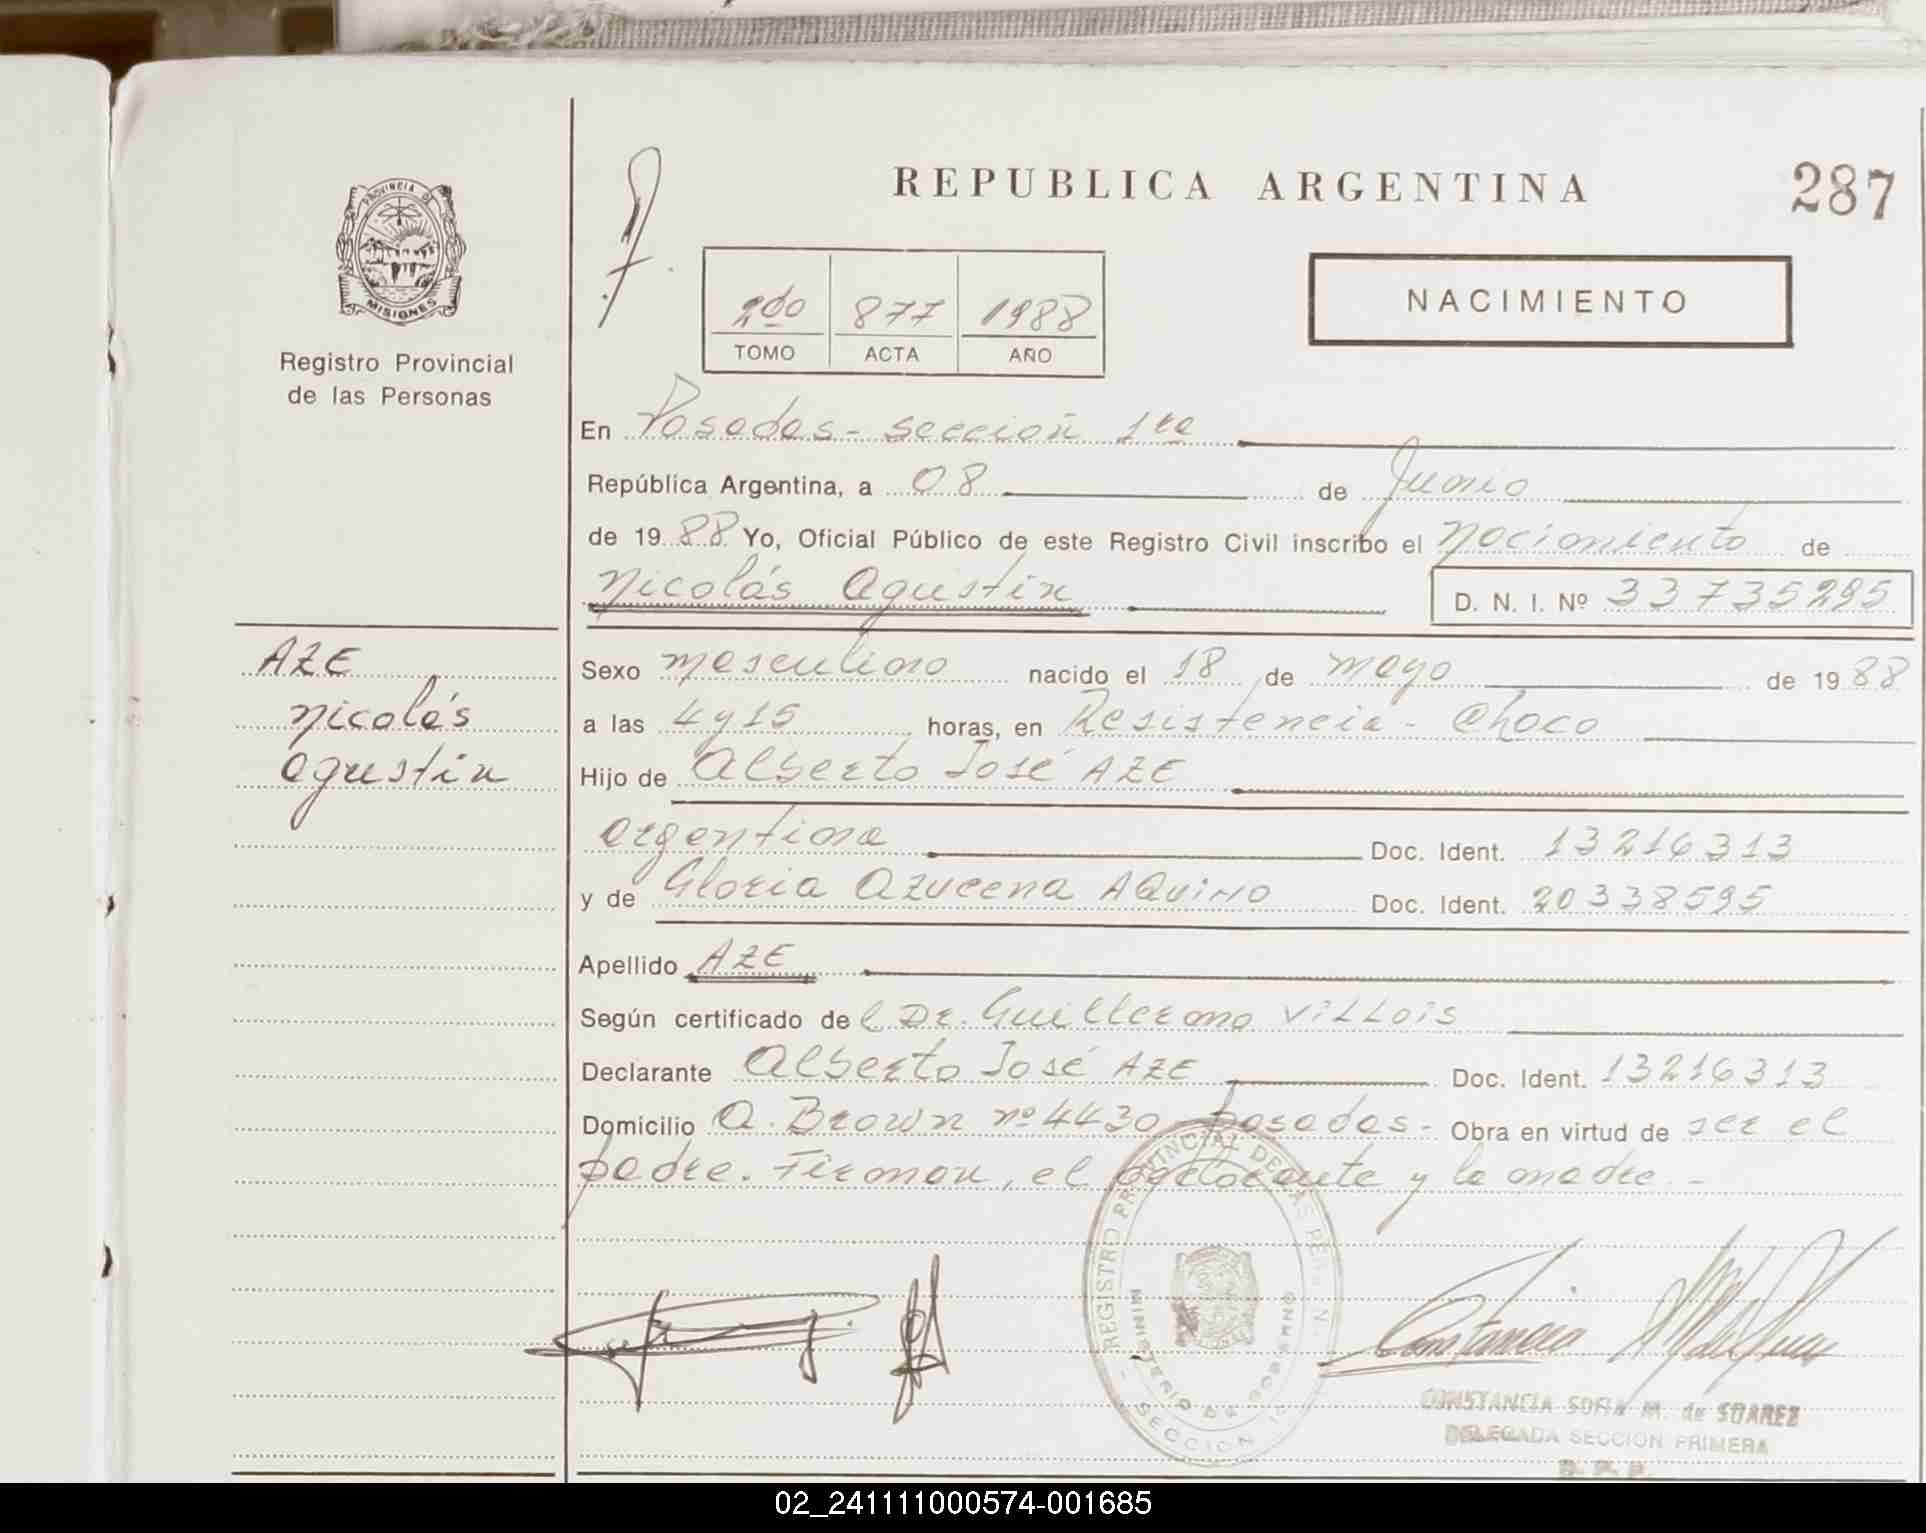 REPUBLICA ARGENTINA
287
PROVINCIA DE
MISIONES
Registro Provincial
de las Personas
2do 877 1988
TOMO ACTA AÑO
NACIMIENTO
En Posadas - sección 1ra
República Argentina, a 08 de Junio
de 1988 Yo, Oficial Público de este Registro Civil inscribo el nacimiento de
Nicolás Agustín D. N. I. Nº 33735295
AZE
Nicolás
Agustín
Sexo masculino nacido el 18 de mayo de 1988
a las 4 y 15 horas, en Resistencia - Chaco
Hijo de Alberto José AZE
argentina Doc. Ident. 13216313
y de Gloria Azucena AQUINO Doc. Ident. 20338595
Apellido AZE
Según certificado del Dr. Guillermo VILLOIS
Declarante Alberto José AZE Doc. Ident. 13216313
Domicilio A. Brown nº 4430 Posadas - Obra en virtud de ser el
padre. Firman, el declarante y la madre. -
REGISTRO PROVINCIAL DE LAS PERSONAS
MINISTERIO DE GOBIERNO
SECCION 1ª
Constancia
CONSTANCIA SOFIA M. de SUAREZ
DELEGADA SECCION PRIMERA
R. P. P.
02_241111000574-001685